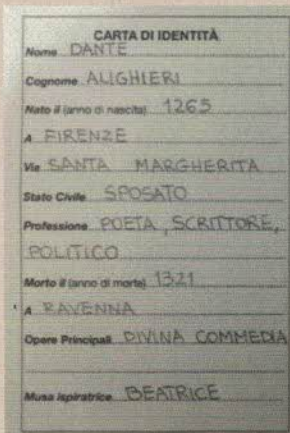 CARTA DI IDENTITÀ
Nome DANTE
Cognome ALIGHIERI
Nato il (anno di nascita) 1265
A FIRENZE
Via SANTA MARGHERITA
Stato Civile SPOSATO
Professione POETA, SCRITTORE,
POLITICO
Morto il (anno di morte) 1321
A RAVENNA
Opere Principali DIVINA COMMEDIA
Musa ispiratrice BEATRICE